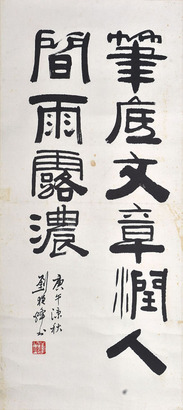 筆底文章潤人
間雨露濃
庚午深秋
劉
書